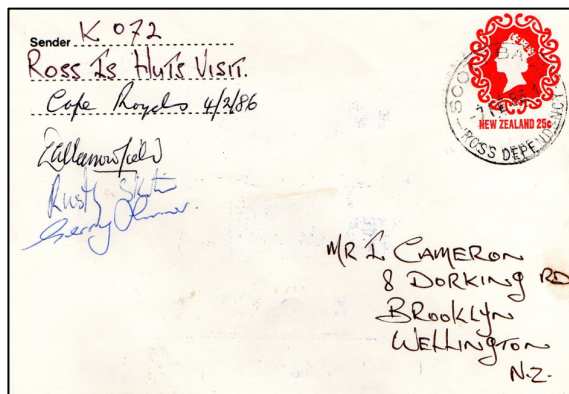 Sender K 072
Ross Is Huts Visit.
Cape Royds 4/2/86
Rusty
Gerry
SCOTT BASE
ROSS DEPENDENCY
NEW ZEALAND 25c
MR I. CAMERON
8 DORKING RD
BROOKLYN
WELLINGTON
N.Z.